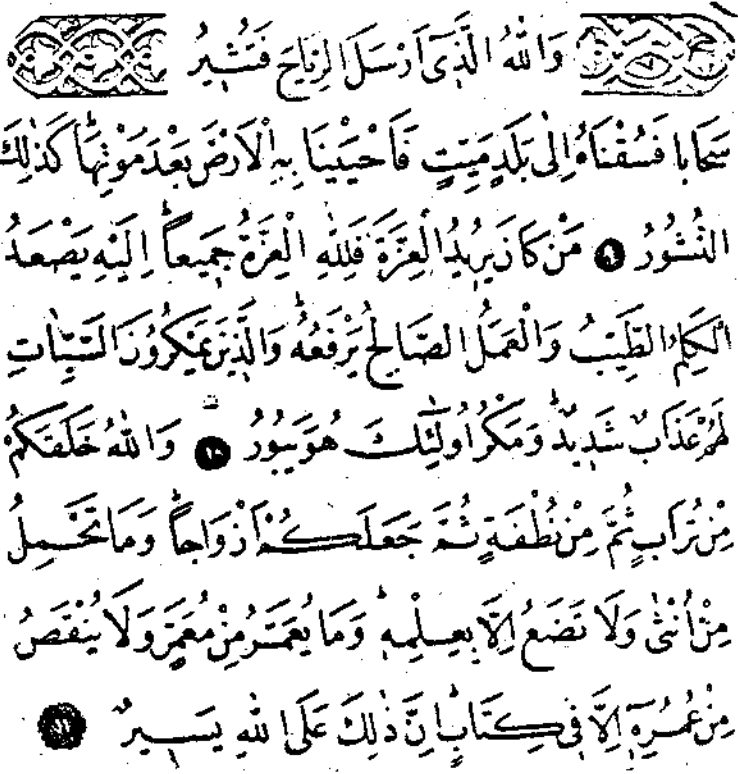 وَاللّٰهُ الَّذٖٓي اَرْسَلَ الرِّيَاحَ فَتُثٖيرُ
سَحَابًا فَسُقْنَاهُ اِلٰى بَلَدٍ مَيِّتٍ فَاَحْيَيْنَا بِهِ الْاَرْضَ بَعْدَ مَوْتِهَاۜ كَذٰلِكَ
النُّشُورُ ﴿٩﴾ مَنْ كَانَ يُرٖيدُ الْعِزَّةَ فَلِلّٰهِ الْعِزَّةُ جَمٖيعًاۜ اِلَيْهِ يَصْعَدُ
الْكَلِمُ الطَّيِّبُ وَالْعَمَلُ الصَّالِحُ يَرْفَعُهُۜ وَالَّذٖينَ يَمْكُرُونَ السَّيِّـَٔاتِ
لَهُمْ عَذَابٌ شَدٖيدٌۜ وَمَكْرُ اُو۬لٰٓئِكَ هُوَ يَبُورُ ﴿١٠﴾ وَاللّٰهُ خَلَقَكُمْ
مِنْ تُرَابٍ ثُمَّ مِنْ نُطْفَةٍ ثُمَّ جَعَلَكُمْ اَزْوَاجًاۜ وَمَا تَحْمِلُ
مِنْ اُنْثٰى وَلَا تَضَعُ اِلَّا بِعِلْمِهٖۜ وَمَا يُعَمَّرُ مِنْ مُعَمَّرٍ وَلَا يُنْقَصُ
مِنْ عُمُرِهٖٓ اِلَّا فٖي كِتَابٍۜ اِنَّ ذٰلِكَ عَلَى اللّٰهِ يَسٖيرٌ ﴿١١﴾